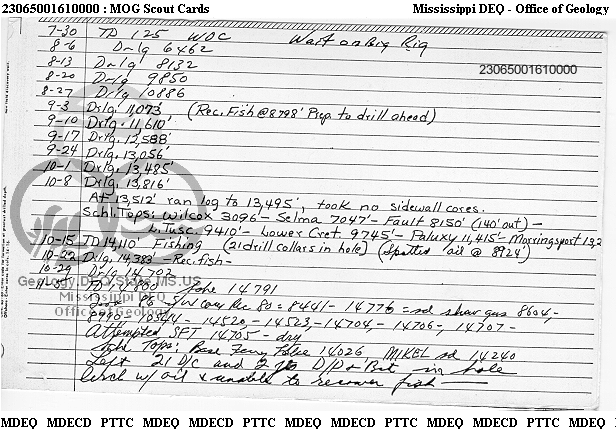 23065001610000 : MOG Scout Cards Mississippi DEQ - Office of Geology
7-30 TD 125 WOC Wait on Big Rig
8-6 Drlg 6462
23065001610000
8-13 Drlg 8132
8-20 Drlg 9850
8-27 Drlg 10886
9-3 Drlg. 11,073' (Rec. Fish @ 8798' Prep to drill ahead)
9-10 Drlg. 11,610'
9-17 Drlg. 12,588'
9-24 Drlg. 13,056'
10-1 Drlg. 13,485'
10-8 Drlg. 13,816'
At 13,512' ran log to 13,495', took no sidewall cores.
Schl. Tops: Wilcox 3096' - Selma 7047' - Fault 8150' (140' out) -
L. Tusc. 9410' - Lower Cret. 9745' - Paluxy 11,415' - Morringsport 13,2
10-15 TD 14,110' Fishing (21 drill collars in hole) (Spotted oil @ 8924')
10-22 Drlg. 14,383' - Rec. fish -
10-29 Drlg 14702
Geology.DEQ.State.MS.US
Mississippi DEQ
Office of Geology
14791
SW core Rec 80 = 8441 - 14776 = sd show gas 8604,
14520, - 14523, - 14704, - 14706, - 14707 -
Attempted SFT 14705 - dry
Tops: Base Ferry Lake 14026 MIKEL sd 14240
Left 21 D/C and 2 D/P & Bit in hole
w/ oil & unable to recover fish
MDEQ MDECD PTTC MDEQ MDECD PTTC MDEQ MDECD PTTC MDEQ MDECD PTTC MDEQ